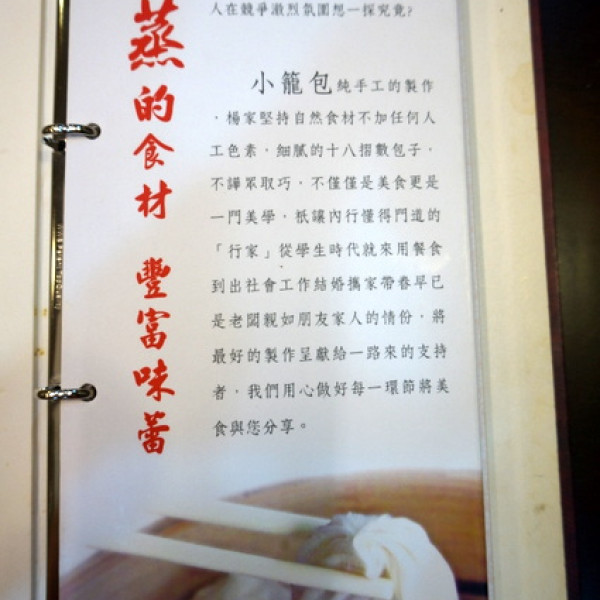 蒸的食材 豐富味蕾
人在競爭激烈氛圍想一探究竟?
小籠包純手工的製作
，楊家堅持自然食材不加任何人
工色素，細膩的十八摺數包子，
不譁眾取巧，不僅僅是美食更是
一門美學，祇讓內行懂得門道的
「行家」從學生時代就來用餐食
到出社會工作結婚攜家帶眷早已
是老闆親如朋友家人的情份，將
最好的製作呈獻給一路來的支持
者，我們用心做好每一環節將美
食與您分享。